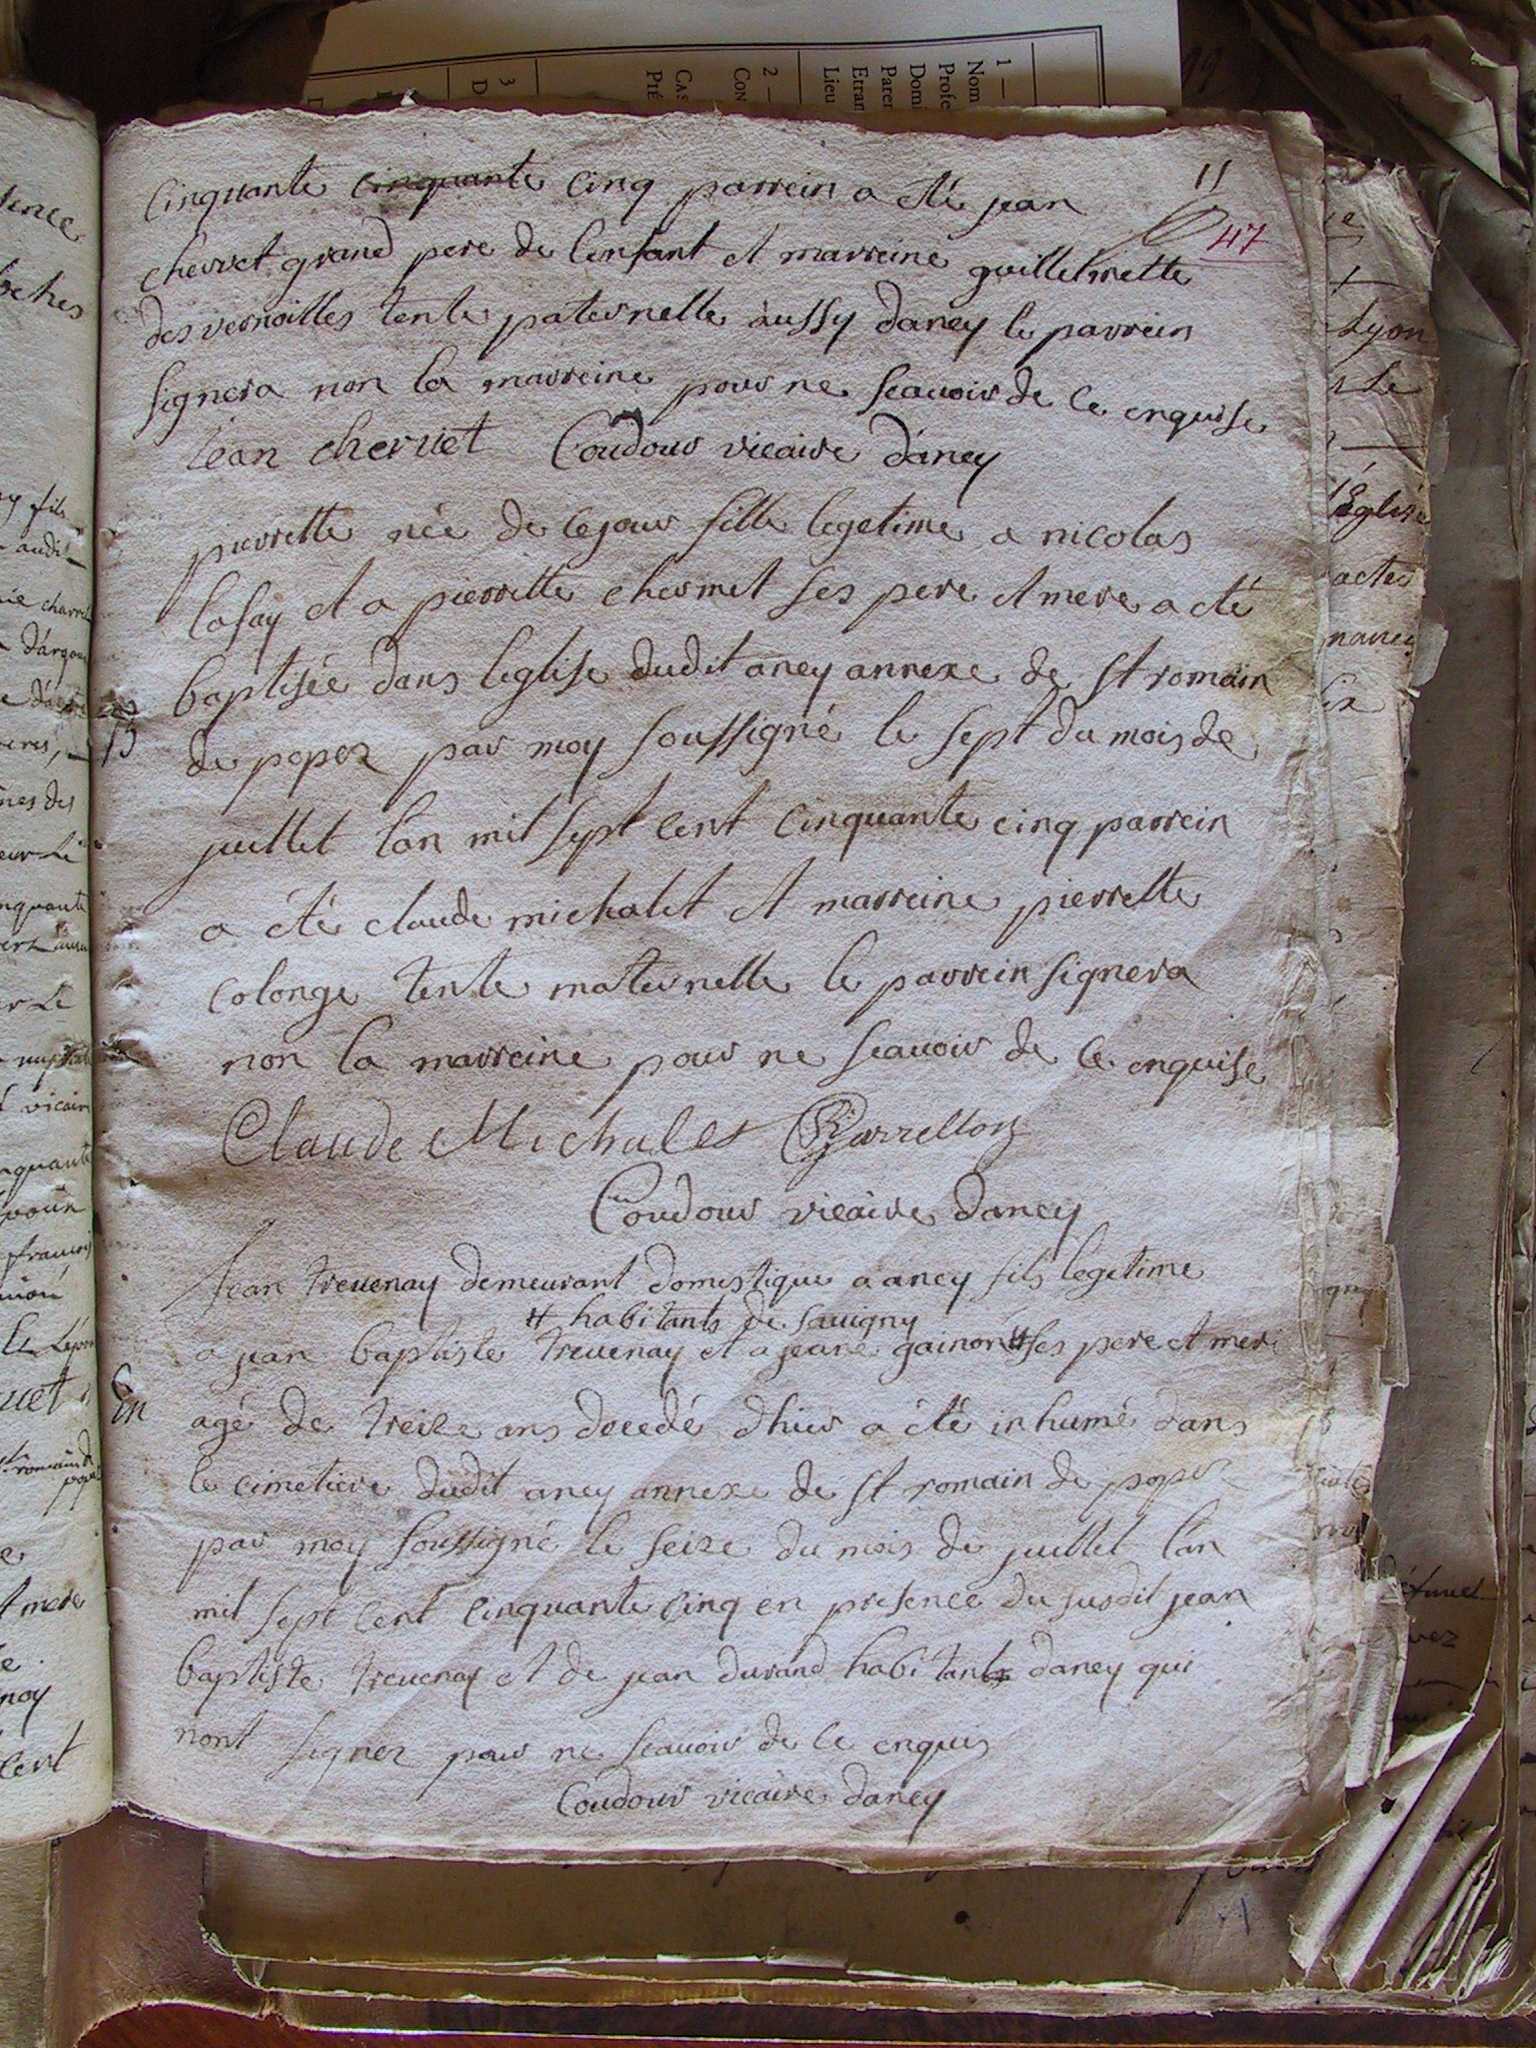 1 —
Nom
Profe
Domi
Paren
Etran
Lieu
2 —
Con
Cas
Pté
3
D
11
47
Cinquante cinquante cinq parrein a été jean
chervet grand pere de lenfant et marreine guillelmette
des vernoilles tente paternelle aussy daney le parrein
signera non la marreine pour ne scauoir de ce enquise
jean cheruet Coudour vicaire daney
pierrette née de ce jour fille legetime a nicolas
lafay et a pierrette chermet ses pere et mere a été
baptisée dans leglise dudit aney annexe de st romain
de popez par moy soussigné le sept du mois de
juillet lan mil sept cent cinquante cinq parrein
a été claude michalet et marreine pierrette
colonge tente maternelle le parrein signera
non la marreine pour ne scauoir de ce enquise
Claude Michalet
Coudour vicaire daney
jean treuenay demeurant domestique a aney fils legetime
# habitants de sauigny
a jean baptiste treuenay et a jeane gainon # ses pere et mere
En
agé de treize ans decedé dhier a été inhumé dans
le cimetiere dudit aney annexe de st romain de popez
par moy soussigné le seize du mois de juillet lan
mil sept cent cinquante cinq en presence du susdit jean
baptiste treuenay et de jean durand habitants daney qui
nont signez pour ne scauoir de ce enquis
Coudour vicaire daney
Lyon
église
acte